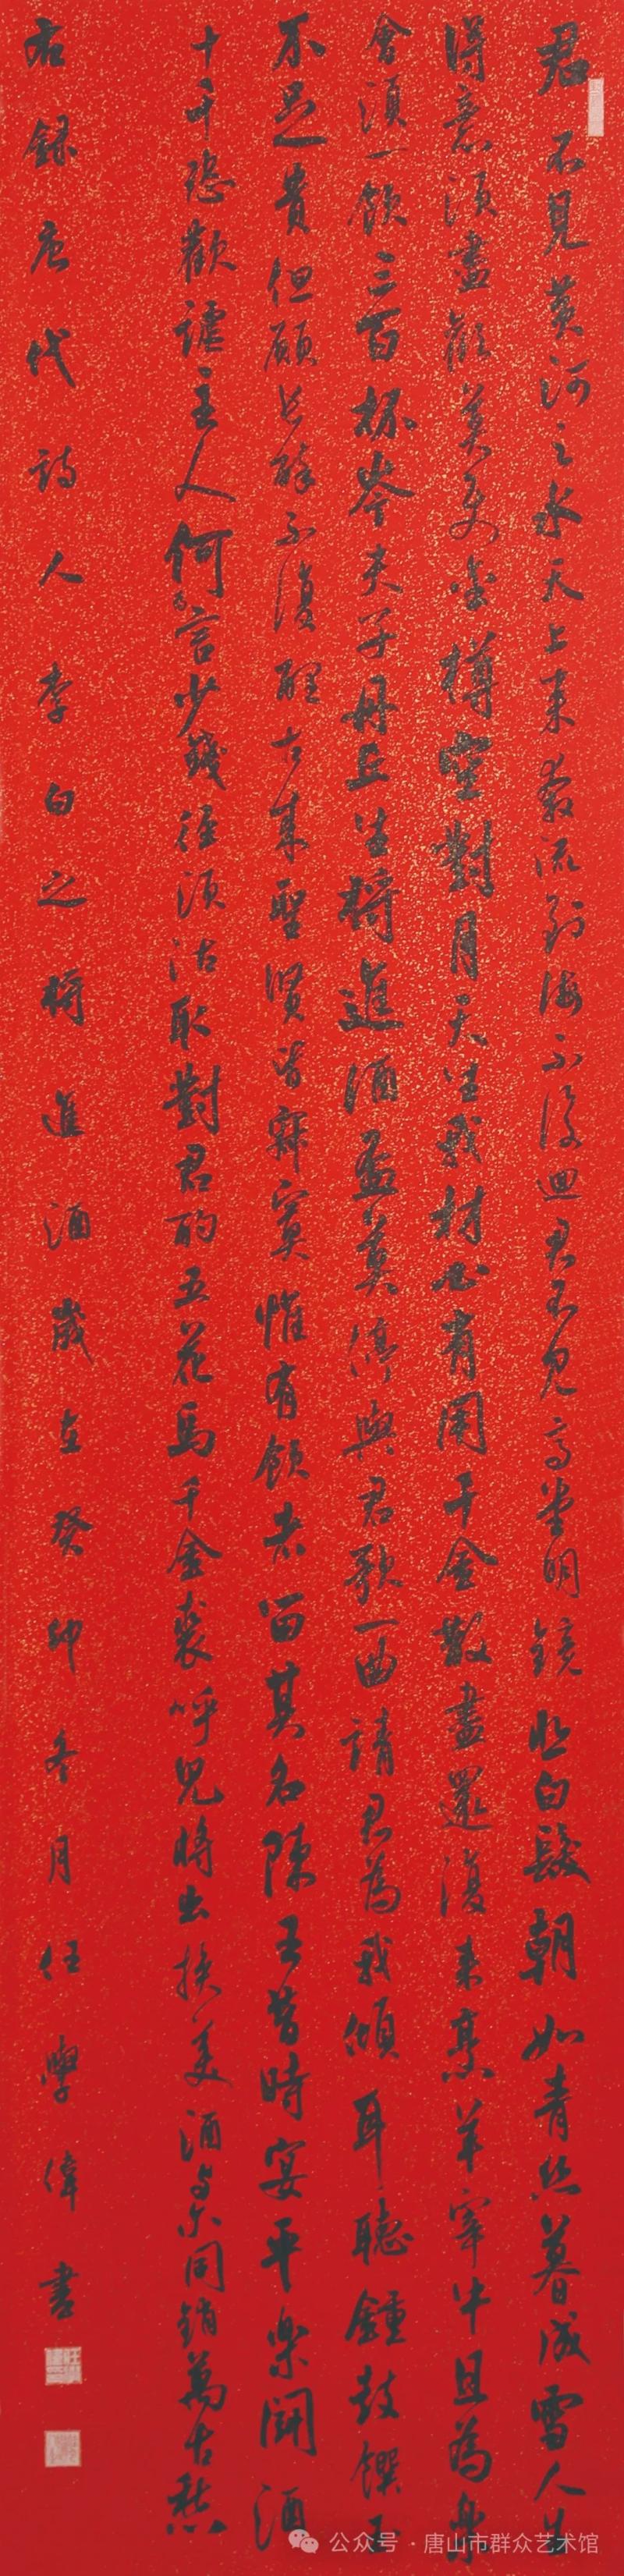 君不見黃河之水天上来奔流到海不復迴君不見高堂明鏡悲白髮朝如青丝暮成雪人生
得意須盡歡莫使金樽空對月天生我材必有用千金散盡還復来烹羊宰牛且為樂
會須一飲三百杯岑夫子丹丘生將進酒盃莫停與君歌一曲請君為我傾耳聽鍾鼓饌玉
不足貴但願長醉不復醒古来聖賢皆寂寞惟有飲者留其名陳王昔時宴平樂鬪酒
十千恣歡謔主人何為言少錢徑須沽取對君酌五花馬千金裘呼兒將出換美酒与尔同銷萬古愁
右録唐代詩人李白之將進酒歲在癸卯冬月任學偉書
公众号·唐山市群众艺术馆